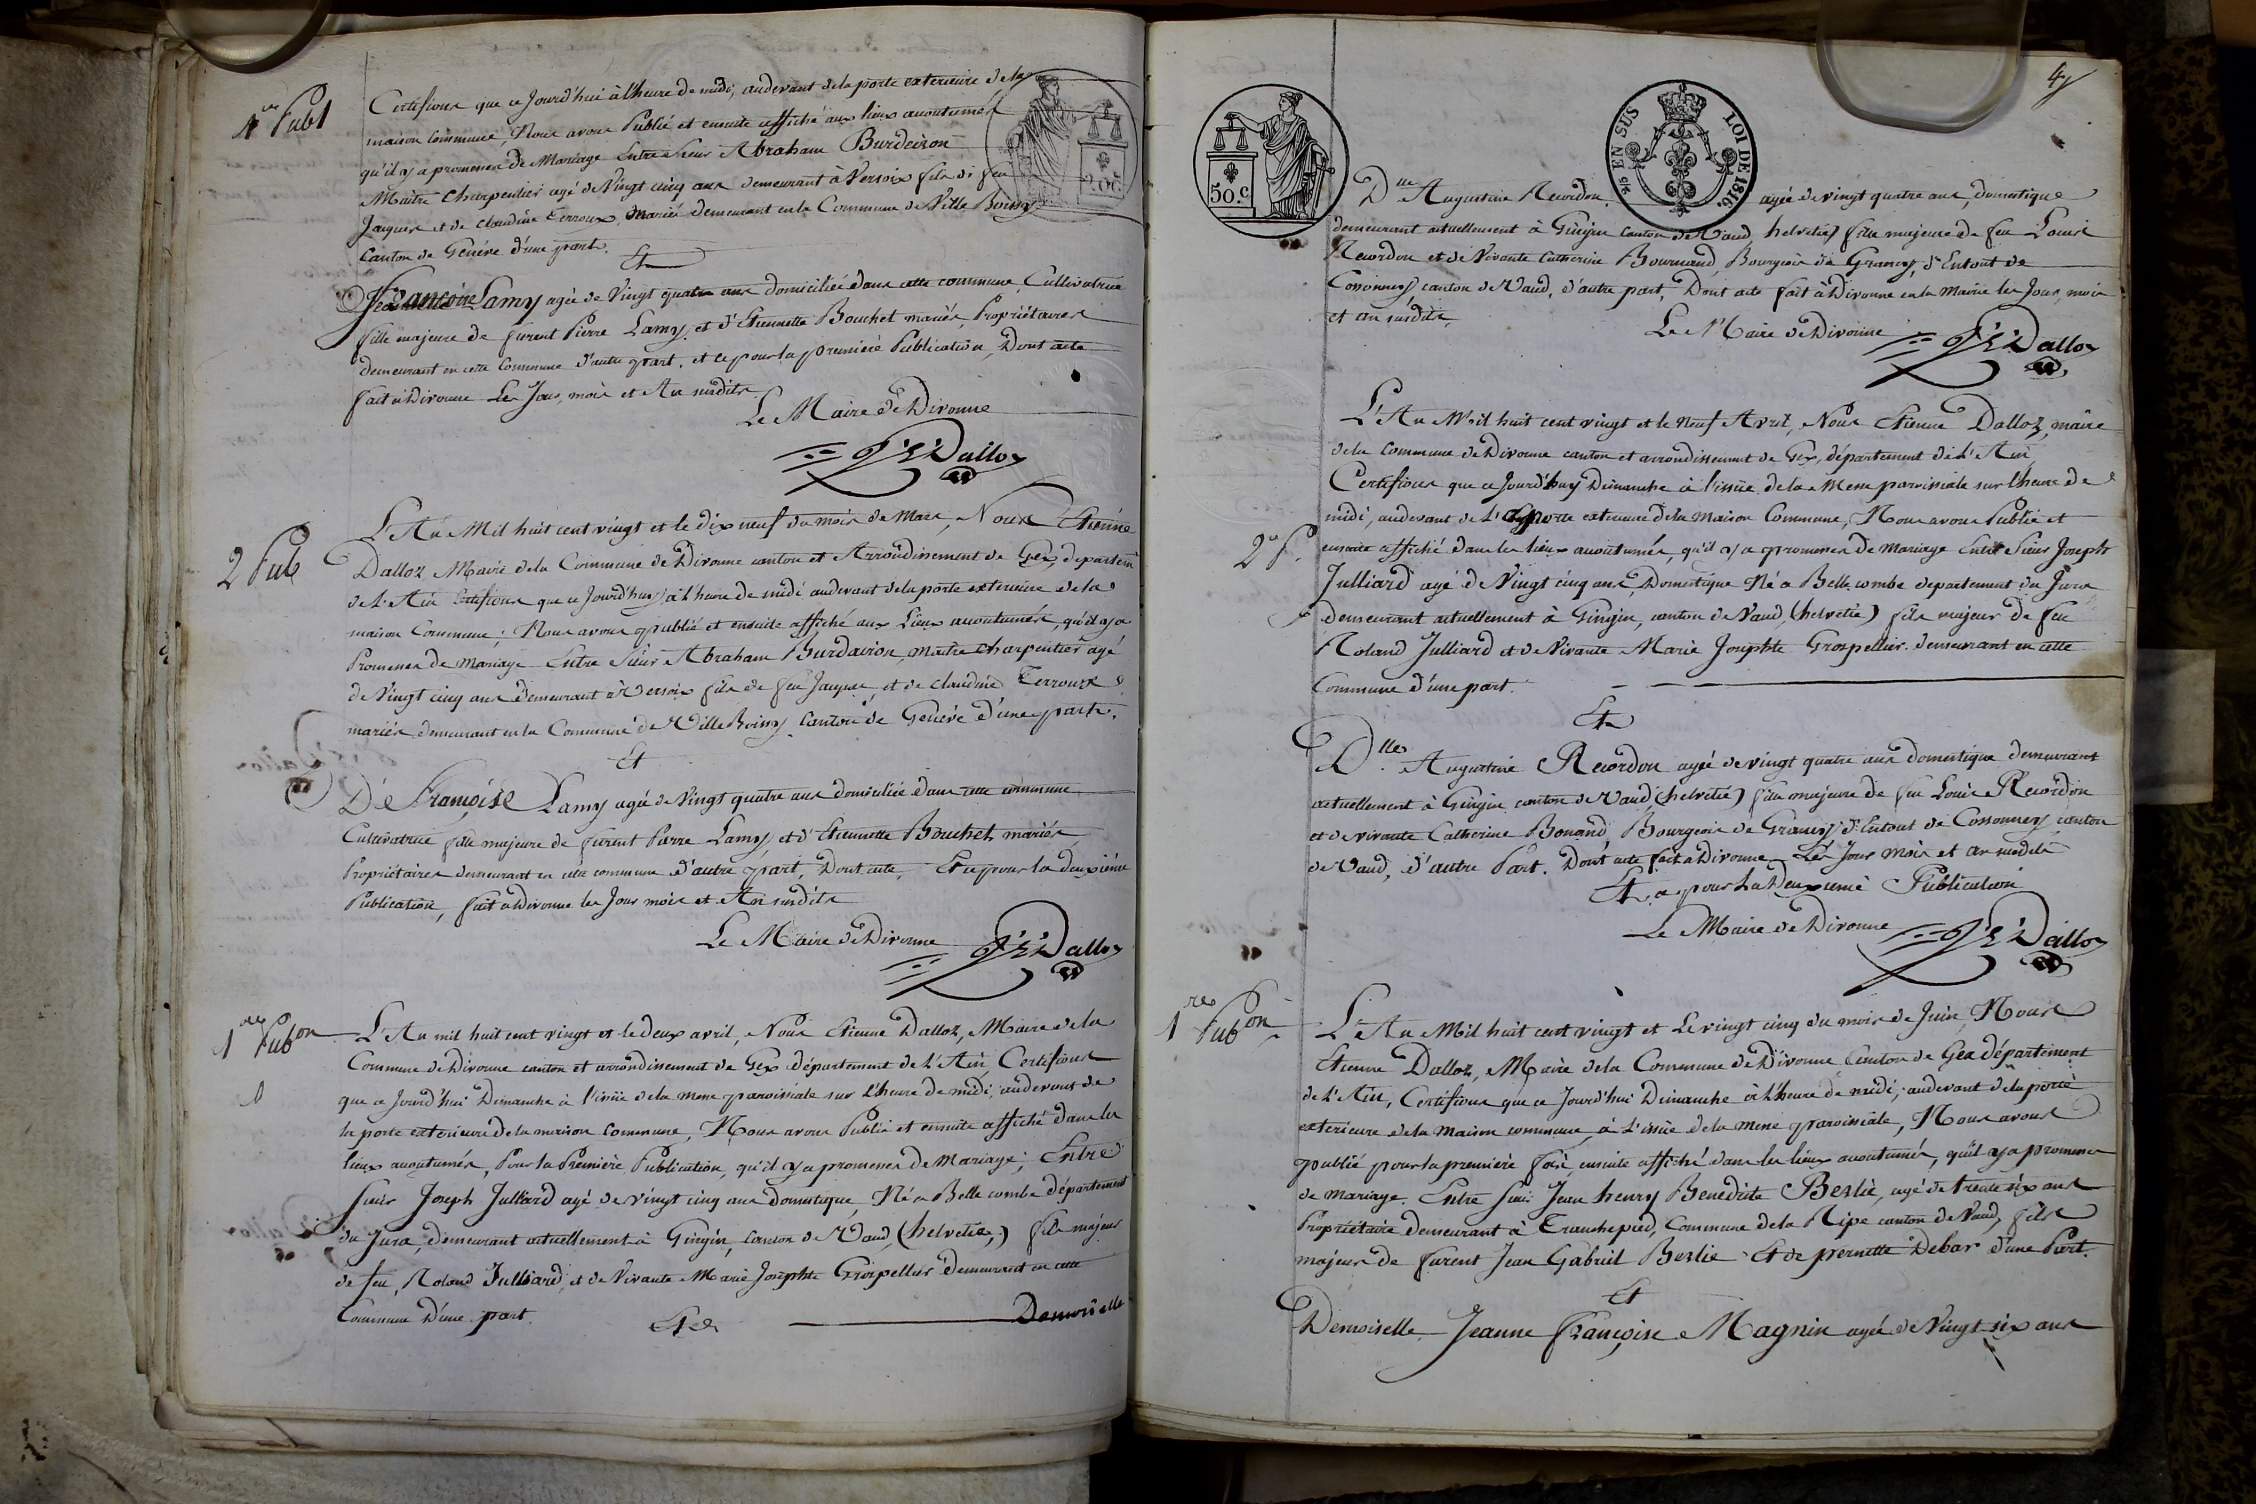 1re Publ
Certifions que ce Jourd'hui à l'heure de midi, audevant de la porte exterieure de la
maison Commune, Nous avons Publié et ensuite affiché aux lieux accoutumés
qu'il y a promesses de Mariage Entre Sieur Abraham Burdeiron
Maitre Charpentier agé de Vingt cinq ans demeurant à Versoix fils de feu
Jaques et de claudine Terroux, Mariés demeurant en la Commune de Ville Boissy
Canton de Genève d'une part.
Et
Francoise Lamy agée de Vingt quatre ans domiciliée dans cette commune, Cultivatrice
fille majeure de furent Pierre Lamy, et d'Etiennette Bouchet mariés, Propriétaires
demeurant en cette Commune d'autre part, et ce pour la premiere Publication, Dont acte
fait à Divonne Les Jour, mois et An susdits
Le Maire de Divonne
Dalloz
2 Pub
L'An Mil huit cent vingt et le dix neuf du mois de Mars, Nous Etienne
Dalloz Maire de la Commune de Divonne canton et Arrondissement de Gex, departem
de L'Ain Certifions que ce Jourd'huy à l'heure de midi audevant de la porte exterieure de la
maison Commune; Nous avons publié et ensuite affiché aux Lieux accoutumés, qu'il y a
Promesses de Mariage Entre Sieur Abraham Burdairon, Maitre Charpentier agé
de Vingt cinq ans demeurant à Versoix fils de feu Jaques, et de claudine Terroux
mariés demeurant en la Commune de Ville Boissy Canton de Genève d'une part.
Et
De Françoise Lamy agée de Vingt quatre ans domiciliée dans cette commune
Cultivatrice fille majeure de furent Pierre Lamy, et d'Etiennette Bouchet mariés
Propriétaires demeurant en cette commune d'autre part, Dont acte, Et ce pour la deuxième
Publication, fait à Divonne les Jour mois et An susdits
Le Maire de Divonne
Dalloz
1re Pubon
L'An mil huit cent vingt et le deux avril, Nous Etienne Dalloz, Maire de la
Commune de Divonne canton et arrondissement de Gex département de L'Ain, Certifions
que ce Jourd'hui Dimanche à l'issüe de la messe paroissiale sur L'heure de midi, audevant de
la porte exterieure de la maison Commune, Nous avons Publié et ensuite affiché dans les
lieux accoutumés, Pour la Première Publication, qu'il y a promesses de Mariage; Entre
Sieur Joseph Julliard agé de vingt cinq ans domestique, Né a Belle combe département
du Jura, demeurant actuellement à Gingin, canton de Vaud, (helvetie,) fils majeur
de feu, Roland Julliard, et de Vivante Marie Josephte Grospellier demeurant en cette
Commune D'une part.
Et
Demoiselle
4
50.c.
5/5 EN SUS LOI DE 1816.
Dlle Augustine Recordon, agée de vingt quatre ans, domestique
demeurant actuellement à Gingin canton de Vaud helvetie) fille majeure de feu Louis
Recordon et de Vivante Catherine Bournand, Bourgeois de Grancy, d'Entout de
Cossonney canton de Vaud, d'autre part, Dont acte fait à Divonne en la Mairie les Jour, mois
et an susdits,
Le Maire de Divonne
Dalloz
2e P.
L'An Mil huit cent vingt et le Neuf Avril, Nous Etienne Dalloz, maire
de la Commune de Divonne canton et arrondissement de Gex, département de L'Ain
Certifions que ce Jourd'huy Dimanche à l'issüe de la Messe paroissiale sur l'heure de
midi, audevant de L' porte exterieure de la Maison Commune, Nous avons Publié et
ensuite affiché dans les lieux accoutumés, qu'il y a promesses de Mariage Entre Sieur Joseph
Julliard agé de Vingt cinq ans, Domestique Né a Belle combe departement du Jura
demeurant actuellement à Gingin, canton de Vaud, (helvetie) fils majeur de feu
Roland Julliard et de Vivante Marie Josephte Grospellier demeurant en cette
Commune d'une part.
Et
Dlle Augustine Recordon agée de vingt quatre ans domestique demeurant
actuellement à Gingin canton de Vaud, (helvetie) fille majeure de feu Louis Recordon
et de vivante Catherine Bonand, Bourgeois de Grancy, d'Entout de Cossonney, canton
de Vaud, d'autre Part. Dont acte fait a Divonne Les Jour Mois et An susdits
Et ce pour La Deuxieme Publication
Le Maire de Divonne
Dalloz
1re Pubon
L'An Mil huit cent vingt et Le vingt cinq du mois de Juin, Nous
Etienne Dalloz, Maire de la Commune de Divonne Canton de Gex département
de L'Ain, Certifions que ce Jourd'hui Dimanche à L'heure de midi, audevant de la porte
exterieure de la Maison commune, à L'issüe de la messe paroissiale, Nous avons
publié pour la première fois, ensuite affiché dans les lieux accoutumés, qu'il y a promesses
de Mariage. Entre Sieur Jean henry Benedicte Berlie, agé de trente six ans
Propriétaire demeurant à Tranchepied, Commune de la Ripe canton de Vaud, fils
majeur de furent Jean Gabriel Berlie Et de pernette Debar d'une Part.
Et
Demoiselle Jeanne françoise Magnin agée de Vingt six ans